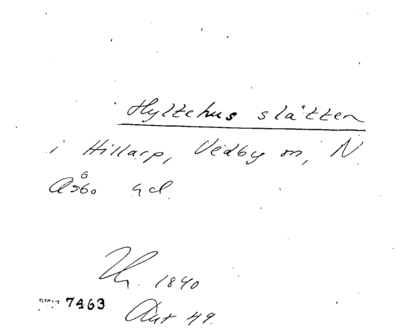 Hyltehus slätten
i Hillarp, Vedby sn, N.
Åsbo hd.
1840
7463
Akt 49.